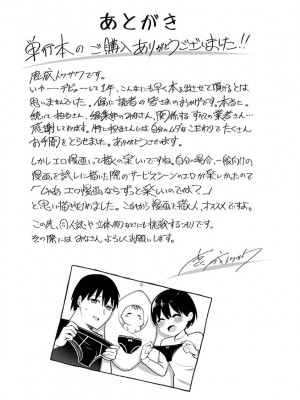 あとがき
単行本のご購入ありがとうございました!!
です。
いやーデビューして1年、こんなにも早く本を出させて頂けるとは
思いませんでした。偏に読者の皆さまのおかげです。本当に。
続いて担当さん、編集部のみなさん、関係するすべての業者さん…
感謝しております。特に担当さんには自分のムダなこだわりでたくさん
お手間をとらせました。ありがとうございます。
しかしエロ漫画って描くの楽しいですね。自分の場合、一般向けの
漫画で試しに描いた際のサービスシーンのエロが楽しかったので
「エロ漫画ならずっと楽しいのでは?」
と思い描きはじめました。これから漫画を描く人、オススメですよ。
この先、同人誌や立体物などにも挑戦するつもりです。
その際にはみなさん、よろしくお願いします。